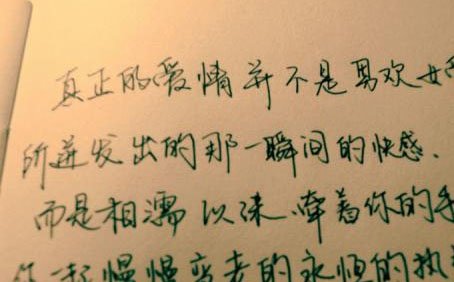 真正的爱情并不是男欢女
所迸发出的那一瞬间的快感.
而是相濡以沫.牵着你的手
你一起慢慢变老的永恒的执